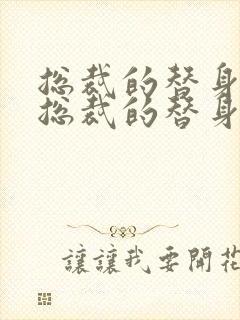 总裁的替身
总裁的替身
讓讓我要開花